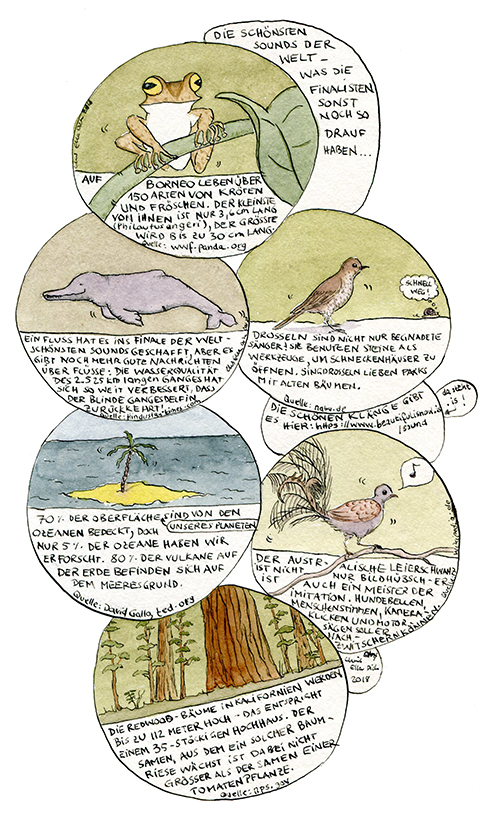 DIE SCHÖNSTEN
SOUNDS DER
WELT –
WAS DIE
FINALISTEN
SONST
NOCH SO
DRAUF
HABEN...
AUF BORNEO LEBEN ÜBER
150 ARTEN VON KRÖTEN
UND FRÖSCHEN. DER KLEINSTE
VON IHNEN IST NUR 3,6 cm LANG
(Philautus angeri), DER GRÖSSTE
WIRD BIS ZU 30 cm LANG.
Quelle: wwf.panda.org
EIN FLUSS HAT ES INS FINALE DER WELT-
SCHÖNSTEN SOUNDS GESCHAFFT, ABER ES
GIBT NOCH MEHR GUTE NACHRICHTEN
ÜBER FLÜSSE: DIE WASSERQUALITÄT
DES 2.525 km langen GANGES HAT
SICH SO WEIT VERBESSERT, DASS
DER BLINDE GANGESDELFIN
ZURÜCKKEHRT!
Quelle: hindustantimes.com
SCHNELL
WEG!
DROSSELN SIND NICHT NUR BEGNADETE
SÄNGER! SIE BENUTZEN STEINE ALS
WERKZEUGE, UM SCHNECKENHÄUSER ZU
ÖFFNEN. SINGDROSSELN LIEBEN PARKS
MIT ALTEN BÄUMEN.
Quelle: nabu.de
DIE SCHÖNEN KLÄNGE GIBT
ES HIER: https://www.beautifulnow.is
/sound
da steht
.is!
70% DER OBERFLÄCHE SIND VON DEN
UNSERES PLANETEN
OZEANEN BEDECKT, DOCH
NUR 5% DER OZEANE HABEN WIR
ERFORSCHT. 80% DER VULKANE AUF
DER ERDE BEFINDEN SICH AUF
DEM MEERESGRUND.
Quelle: David Gallo, ted.org
DER AUSTRALISCHE LEIERSCHWANZ
IST NICHT NUR BILDHÜBSCH – ER
IST AUCH EIN MEISTER DER
IMITATION. HUNDEBELLEN,
MENSCHENSTIMMEN, KAMERA-
KLICKEN UND MOTOR-
SÄGEN SOLL ER
NACH-
ZWITSCHERN KÖNNEN.
2018
DIE REDWOOD-BÄUME IN KALIFORNIEN WERDEN
BIS ZU 112 METER HOCH – DAS ENTSPRICHT
EINEM 35-STÖCKIGEN HOCHHAUS. DER
SAMEN, AUS DEM EIN SOLCHER BAUM-
RIESE WÄCHST IST DABEI NICHT
GRÖSSER ALS DER SAMEN EINER
TOMATENPFLANZE.
Quelle: nps.gov